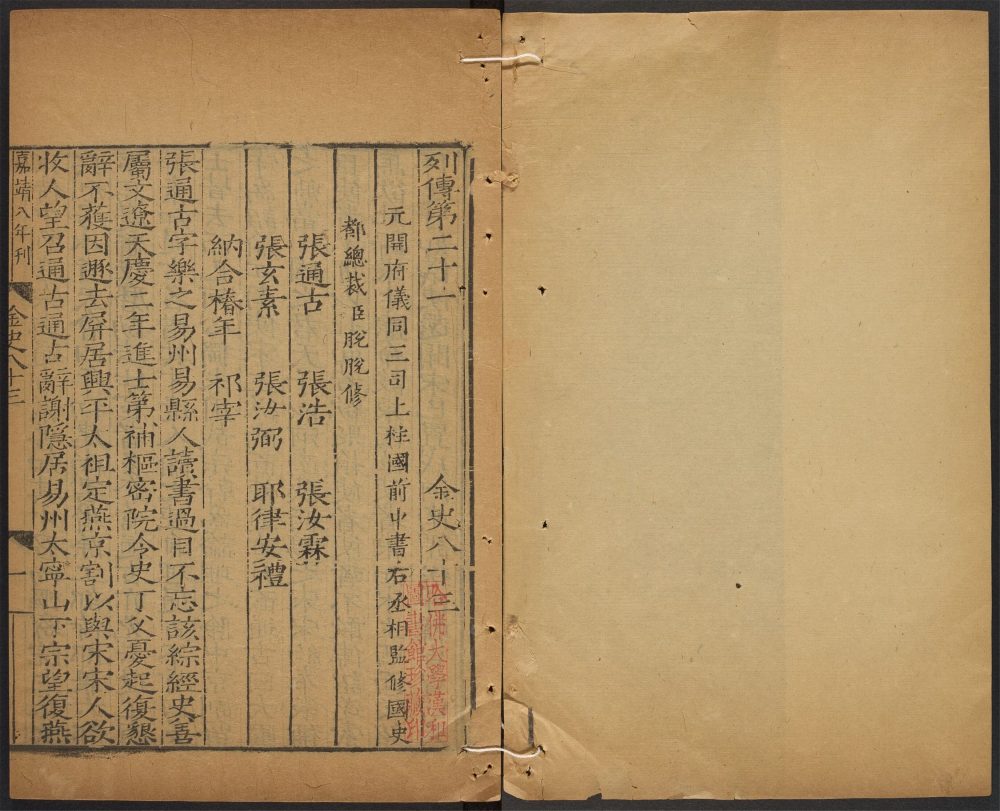 列傳第二十一 金史八十三
元開府儀同三司上柱國前中書右丞相監修國史
都總裁臣脫脫修
張通古 張浩 張汝霖
張玄素 張汝弼 耶律安禮
納合椿年 祁宰
張通古字樂之易州易縣人讀書過目不忘該綜經史善
屬文遼天慶二年進士第補樞密院令史丁父憂起復懇
辭不獲因遯去屏居興平太祖定燕京割以與宋宋人欲
收人望召通古通古辭謝隱居易州太寧山下宗望復燕
嘉靖八年刊 金史八十三 一
哈佛大學漢和
圖書館珍藏印